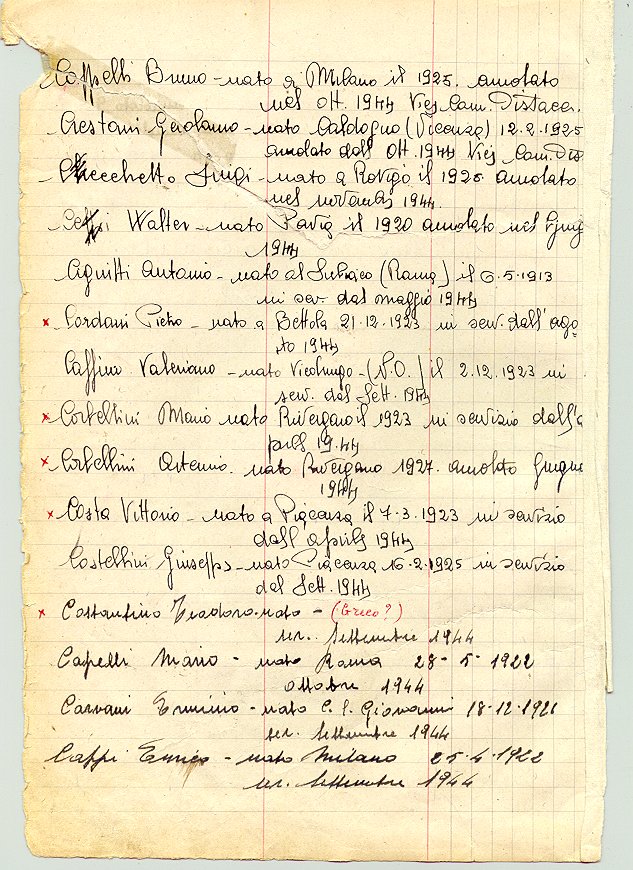 Coppelli Bruno - nato a Milano il 1925. arruolato
nel ott. 1944 Vice Com. Distacc.
Crestani Gerolamo - nato Caldogno (Vicenza) 12.2.1925
arruolato dall' ott. 1944 Vice Com. Dis
Checchetto Luigi - nato a Rovigo il 1925 arruolato
nel novembre 1944.
Walter - nato Pavia il 1920 arruolato nel Giug
1944
Antonio - nato al Subiaco (Roma) il 6.5.1913
in ser. dal maggio 1944
x Cordani Pietro - nato a Bettola 21.12.1923 in serv. dall' ago-
sto 1944
Caffini Valeriano - nato - ( ) il 2.12.1923 in
serv. dal Sett. 1944
x Cortellini Mario nato Rivergaro il 1923 in servizio dall' a
prile 19.44
x Cortellini Artemio. nato Rivergaro 1927. arruolato Giugno
1944
x Costa Vittorio - nato a Piacenza il 7.3.1923 in servizio
dall' aprile 1944
Costellini Giuseppe - nato Piacenza 16.2.1925 in servizio
dal Sett. 1944
x Costantino Teodoro. nato - (Greco?)
ser. Settembre 1944
Capelli Mario - nato Roma 28 - 5 - 1922
ottobre 1944
Carvani Erminio - nato C. S. Giovanni 18.12.1921
ser. Settembre 1944
Caffi Enrico - nato Milano 25.4.1922
ser. Settembre 1944